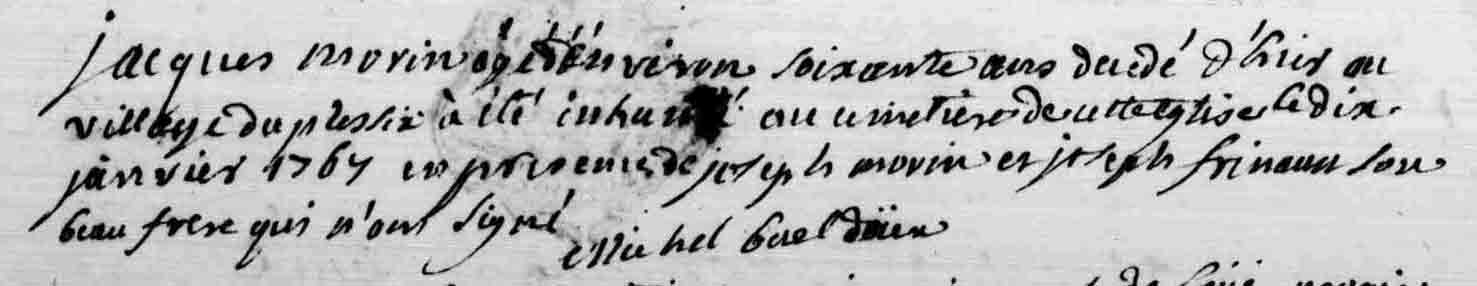 jacques morin âgé d'environ soixante ans decedé d'hier au
village du plessix à été inhumé au cimetiere de cette eglise le dix
janvier 1767 en presence de joseph morin et joseph frinault son
beau frere qui n'ont signé
Michel